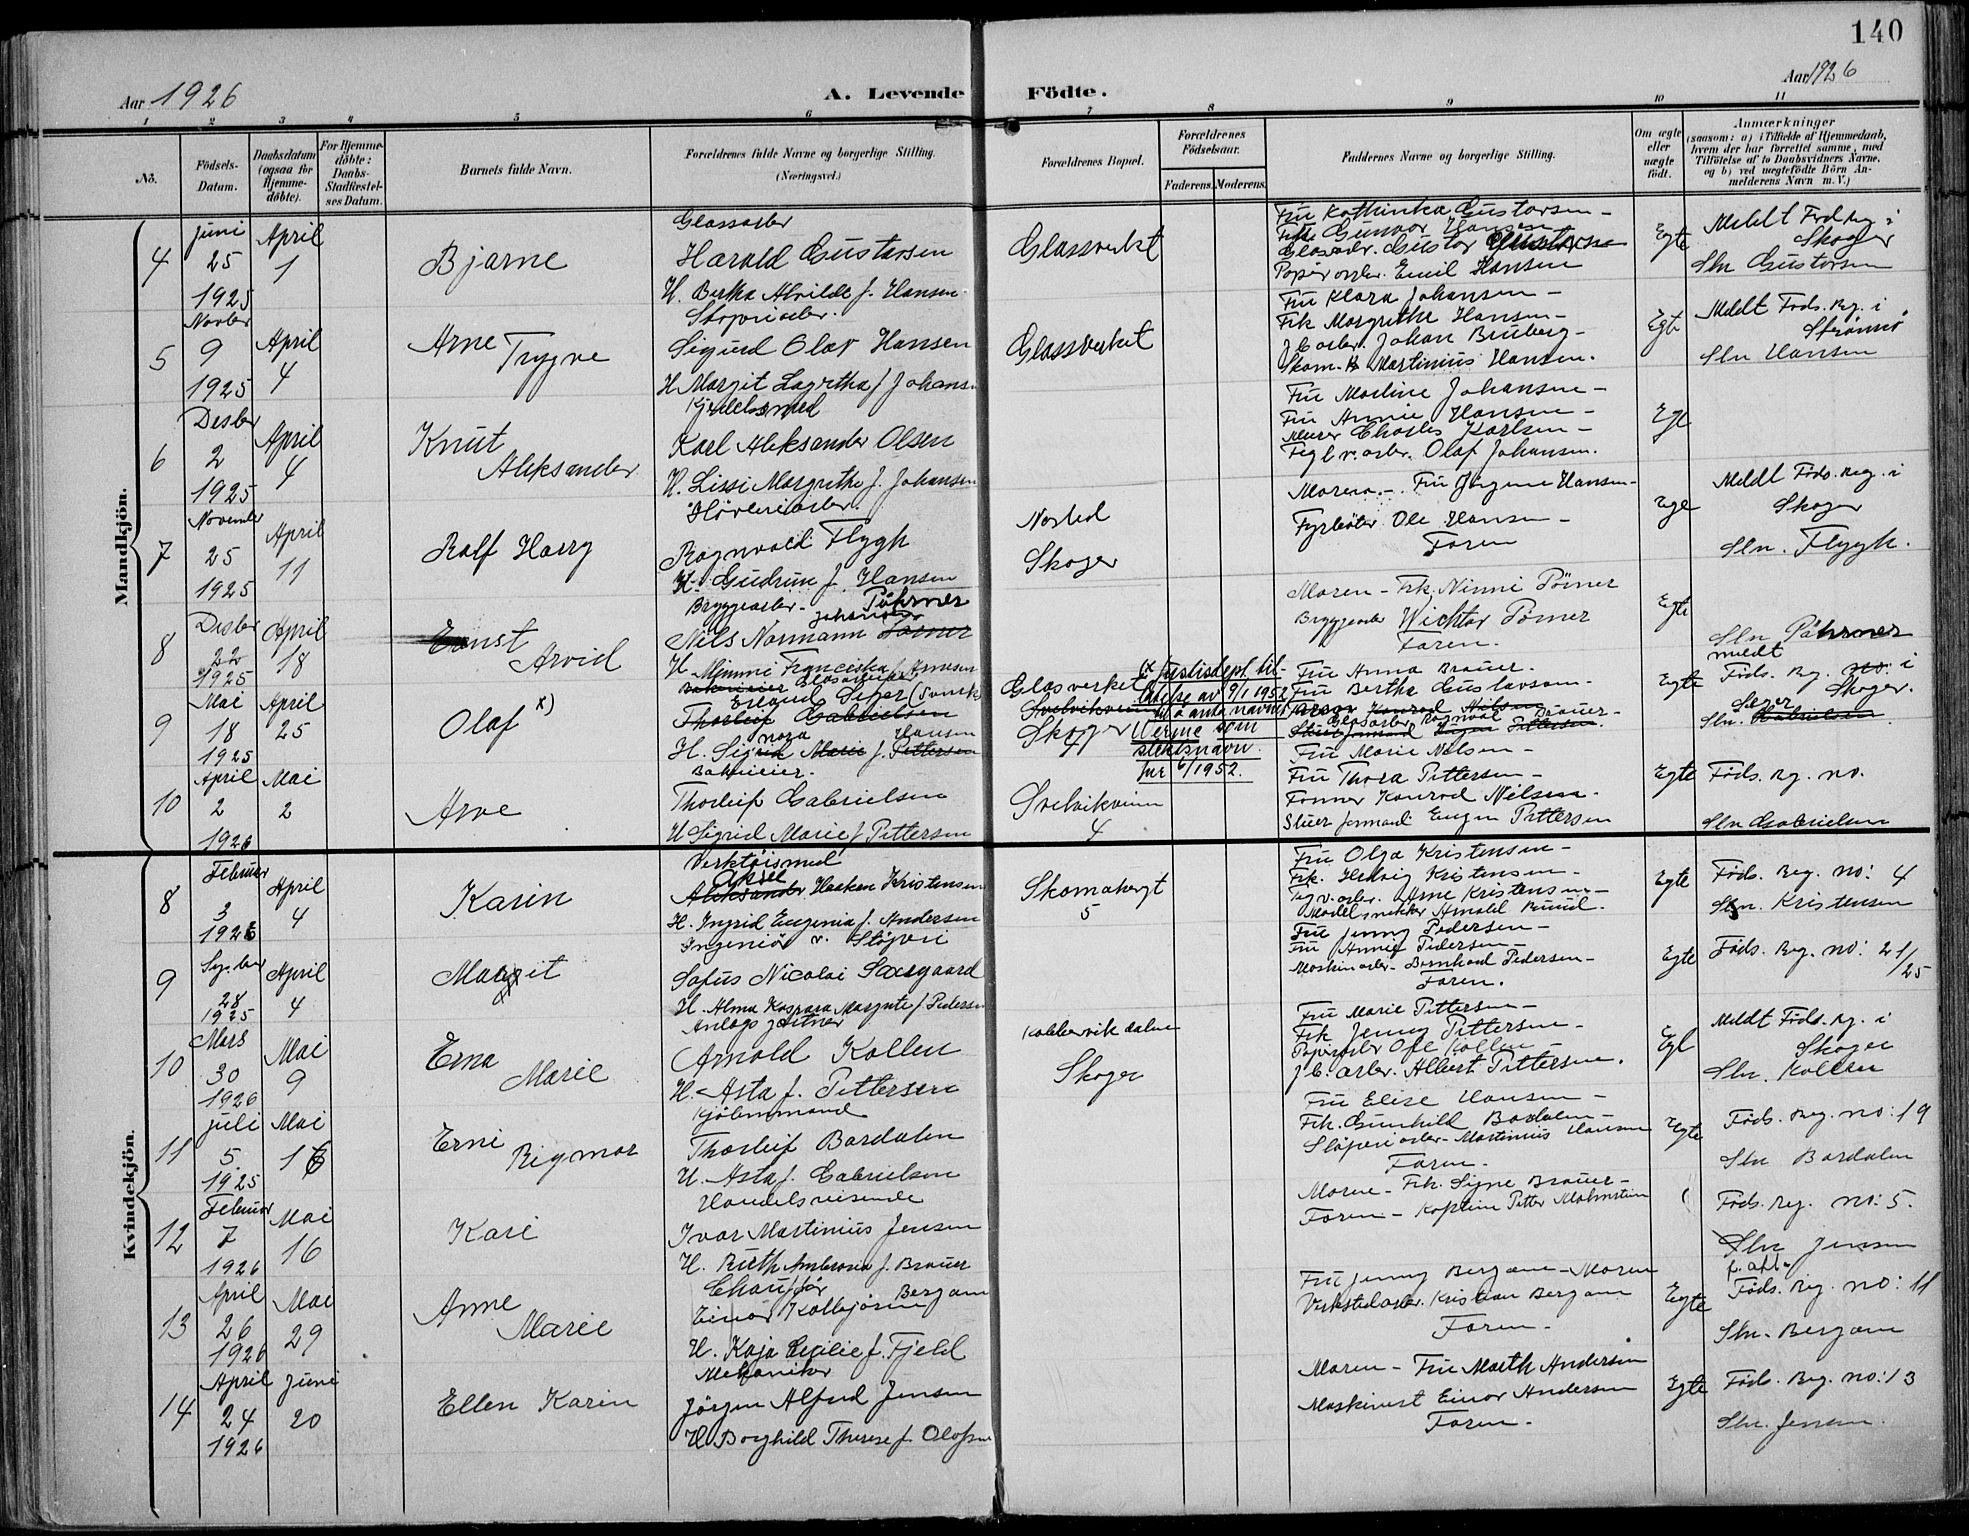 140
Aar 1926
A. Levende Födte.
Aar 1926
1 2 3 4 5 6 7 8 9 10 11
No.
Födsels-Datum.
Daabsdatum (ogsaa for Hjemmedöbte).
For Hjemmedöbte: Daabs-Stadfæstelses Datum.
Barnets fulde Navn.
Forældrenes fulde Navne og borgerlige Stilling. (Næringsvei.)
Forældrenes Bopæl.
Forældrenes Födselsaar.
Faderens. Moderens.
Faddernes Navne og borgerlige Stilling.
Om ægte eller uægte födt.
Anmærkninger
(saasom: a) i Tilfælde af Hjemmedaab, hvem der har forrettet samme, med Tilföielse af to Daabsvidners Navne, og b) ved uægtefödte Börn Anmelderens Navn m. V.)
Mandkjön.
4
Juni 25 1925
April 1
Bjarne
Glassarbr
Harald Gustavsen
H. Bertha Alvilde f. Hansen
Glassverket
Fru Kathinka Gustavsen -
Frk Gunvor Hansen
Glassarbr. Gustav Gustavsen
Papirarbr. Emil Hansen
Egte
Meldt Föd. Reg. i
Skoger
Sln Gustavsen
5
Novbr 9 1925
April 4
Arne Trygve
Sigurd Olav Hansen
H Margit Lagertha f Johans
Glassverket
Fru Klara Johansen -
Frk Margrethe Hansen -
J C arbr. Johan Bruberg -
Skom. Martinius Hansen.
Egte
Meldt Föds. Reg. i
Strömsö
Sln Hansen
6
Desbr 2 1925
April 4
Knut Aleksander
Kjedelsmed
Karl Aleksander Olsen
H. Lissi Margrethe f. Johansen
Fru Martine Johansen -
Fru Annie Hansen -
Murer Charles Karlsen -
Teglv. arbr. Olaf Johansen.
Egt
7
November 25 1925
April 11
Ralf Harry
Hövleriarbr.
Ragnvald Flygh
H. Gudrun f. Hansen
Nøsted
Skoger
Moren -. Fru Jörgine Hansen -
Fyrböter Ole Hansen -
Faren
Egte
Meldt Föds. Reg. i
Skoger
Sln. Flygh.
8
Desbr 22 1925
April 18
Ernst Arvid
Bryggearbr -
Johansen Påhrner
Nils Normann
H. Mimmi Franciska f. Arnesen
Moren - Frk. Ninni Pörner
Bryggearbr Wichtor Pörner
Faren.
Egte
Sln Påhrner
9
Mai 18 1925
April 25
Olaf x)
Thorleif Gabrielsen
H. Sigrid Marie f. Pettersen
Nora Hansen
Glasverket
Svelvikveien
Skoger
x) Justisdept. til-
latelse av 9/1 1952
til å anta navnet
Werme som
slektsnavn.
Fru Anna Brauer.
Fru Bertha Gustavson -
Konrad Nilsen
Glasarbr Ragnval Brauer -
Egte
meldt
Föds. Reg. no. i
Skoger.
Sln. Gabrielsen
10
April 2 1926
Mai 2
Arve
Bakerieier.
Thorleif Gabrielsen
H Sigrid Marie f. Pettersen
Svelvikveien
4
Fru Marie Nilsen -
Fru Thora Pettersen -
Former Konrad Nilsen.
Stuer formand Eugen Pettersen
Egte
Föds. Reg. no.
Sln Gabrielsen
Kvindekjön.
8
Februar 3 1926
April 4
Karin
Verktöismed
Aksel
Aleksander Haaken Kristensen
H. Ingrid Eugenia f. Andersen
Skomakergt
5
Fru Olga Kristensen -
Frk. Hedvig Kristensen -
Tegv. arbr. Arne Kristensen -
Modelsnekker Arnold Ruud.
Egte
Föds. Reg. no: 4
Sln. Kristensen
9
28 1925
April 4
Margit
Ingeniör v. Stöperi
Sofus Nicolai Saxegaard
H. Alma Kaspara Margrete f Pedersen
Fru Jenny Pedersen -
Fru Annie Pedersen -
Maskinarbr - Bernhard Pedersen -
Faren.
Egte
Föds. Reg. no: 21/25
10
Mars 30 1926
Mai 9
Erna Marie
Anlægsgartner
Arnold Kollen
H. Asta f. Pettersen
Kobbervik dalen
Skoger
Fru Marie Pettersen -
Frk Jenny Pettersen -
Papirarbr Ole Kollen -
J C. arbr. Albert Pettersen.
Egt
Meldt Föds. Reg. i
Skoger
Sln. Kollen
11
Juli 5. 1925
Mai 16
Erni Rigmor
Thorleif Bordalen
H. Asta f. Gabrielsen
Fru Elise Hansen -
Frk. Gunhild Bordalen -
Stöperiarbr - Martinius Hansen
Faren -
Egte
Föds. Reg. no: 19
Sln Bordalen
12
Februar 7 1926
Mai 16
Kari
Handelsreisende
Ivar Martinius Jensen
H. Ruth Ambrosia f. Brauer
Moren - Frk. Signe Brauer -
Faren - Kaptein Petter Malmstein
Föds. Reg. no: 5.
Sln Jensen
13
April 26 1926
Mai 29
Anne Marie
Chauffør
Einar Kolbjörn Bergam
H. Kaja Cecilie f. Fjeld
Fru Jenny Bergam - Moren
Verkstedarbr. Kristian Bergam
Faren -
Egte
f. att.
Föds. Reg. no: 11
Sln. Bergam
14
April 24 1926
Juni 20
Ellen Karin
Mekaniker
Jörgen Alfred Jensen
H Borghild Therese f. Olofsen
Moren - Fru Marth Andersen
Maskinist Einar Andersen
Faren -
Egte
Föds. Reg. no: 13
Sln. Jensen.